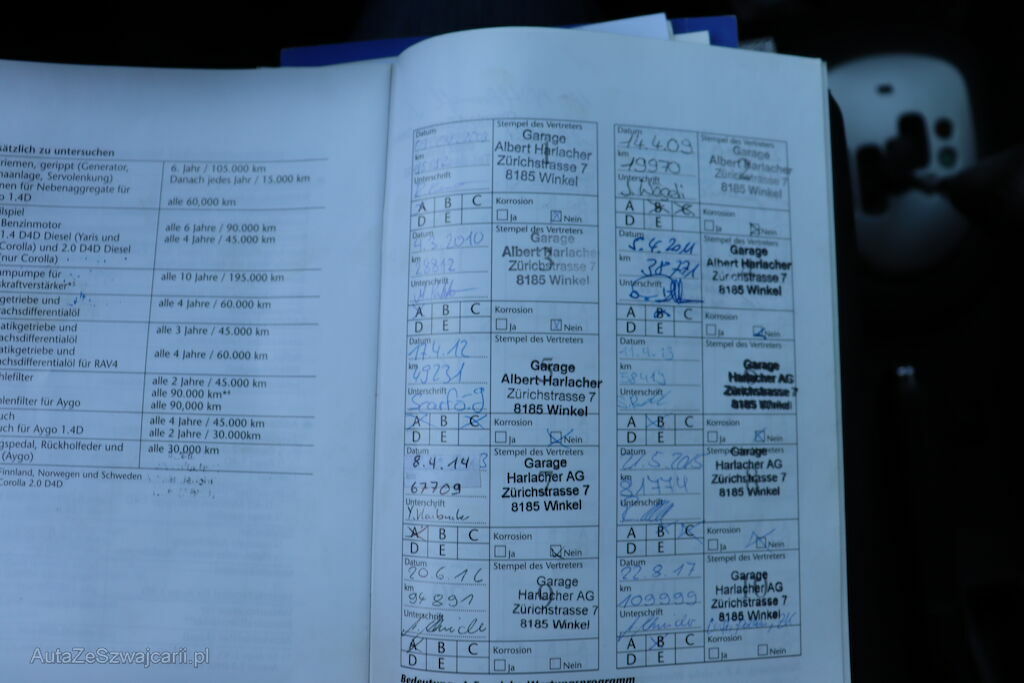 sätzlich zu untersuchen
riemen, gerippt (Generator,
maanlage, Servolenkung)
nen für Nebenaggregate für
o 1.4D
6. Jahr / 105.000 km
Danach jedes Jahr / 15.000 km
alle 60,000 km
ilspiel
Benzinmotor
1.4 D4D Diesel (Yaris und
Corolla) und 2.0 D4D Diesel
(nur Corolla)
alle 6 Jahre / 90.000 km
alle 4 Jahre / 45.000 km
umpumpe für
skraftverstärker*⁾
alle 10 Jahre / 195.000 km
getriebe und
achsdifferentialöl
alle 4 Jahre / 60.000 km
atikgetriebe und
achsdifferentialöl
alle 3 Jahre / 45.000 km
atikgetriebe und
achsdifferentialöl für RAV4
alle 4 Jahre / 60.000 km
hlefilter
alle 2 Jahre / 45.000 km
alle 90.000 km**
hlenfilter für Aygo
alle 90,000 km
uch
uch für Aygo 1.4D
alle 4 Jahre / 45.000 km
alle 2 Jahre / 30.000km
gspedal, Rückholfeder und
(Aygo)
alle 30,000 km
Finnland, Norwegen und Schweden
Corolla 2.0 D4D
Datum
km
Unterschrift
Stempel des Vertreters
Garage
Albert Harlacher
Zürichstrasse 7
8185 Winkel
A B C
D E
Korrosion
Ja Nein
Datum
14.4.09
km
19970
Unterschrift
Stempel des Vertreters
Garage
Albert Harlacher
Zürichstrasse 7
8185 Winkel
A B C
D E
Korrosion
Ja Nein
Datum
4.3.2010
km
28312
Unterschrift
Stempel des Vertreters
Garage
Albert Harlacher
Zürichstrasse 7
8185 Winkel
A B C
D E
Korrosion
Ja Nein
Datum
5.4.2011
km
Unterschrift
Stempel des Vertreters
Garage
Albert Harlacher
Zürichstrasse 7
8185 Winkel
A B C
D E
Korrosion
Ja Nein
Datum
17.4.12
km
49231
Unterschrift
Stempel des Vertreters
Garage
Albert Harlacher
Zürichstrasse 7
8185 Winkel
A B C
D E
Korrosion
Ja Nein
Datum
11.4.13
km
58413
Unterschrift
Stempel des Vertreters
Garage
Harlacher AG
Zürichstrasse 7
8185 Winkel
A B C
D E
Korrosion
Ja Nein
8.4.14
67709
Unterschrift
Stempel des Vertreters
Garage
Harlacher AG
Zürichstrasse 7
8185 Winkel
A B C
D E
Korrosion
Ja Nein
Datum
21.5.2015
km
81774
Unterschrift
Stempel des Vertreters
Garage
Harlacher AG
Zürichstrasse 7
8185 Winkel
A B C
D E
Korrosion
Ja Nein
Datum
20.6.16
km
94891
Unterschrift
Stempel des Vertreters
Garage
Harlacher AG
Zürichstrasse 7
8185 Winkel
A B C
D E
Korrosion
Ja Nein
Datum
22.8.17
km
109999
Unterschrift
Stempel des Vertreters
Garage
Harlacher AG
Zürichstrasse 7
8185 Winkel
A B C
D E
Korrosion
Ja Nein
AutaZeSzwajcarii.pl